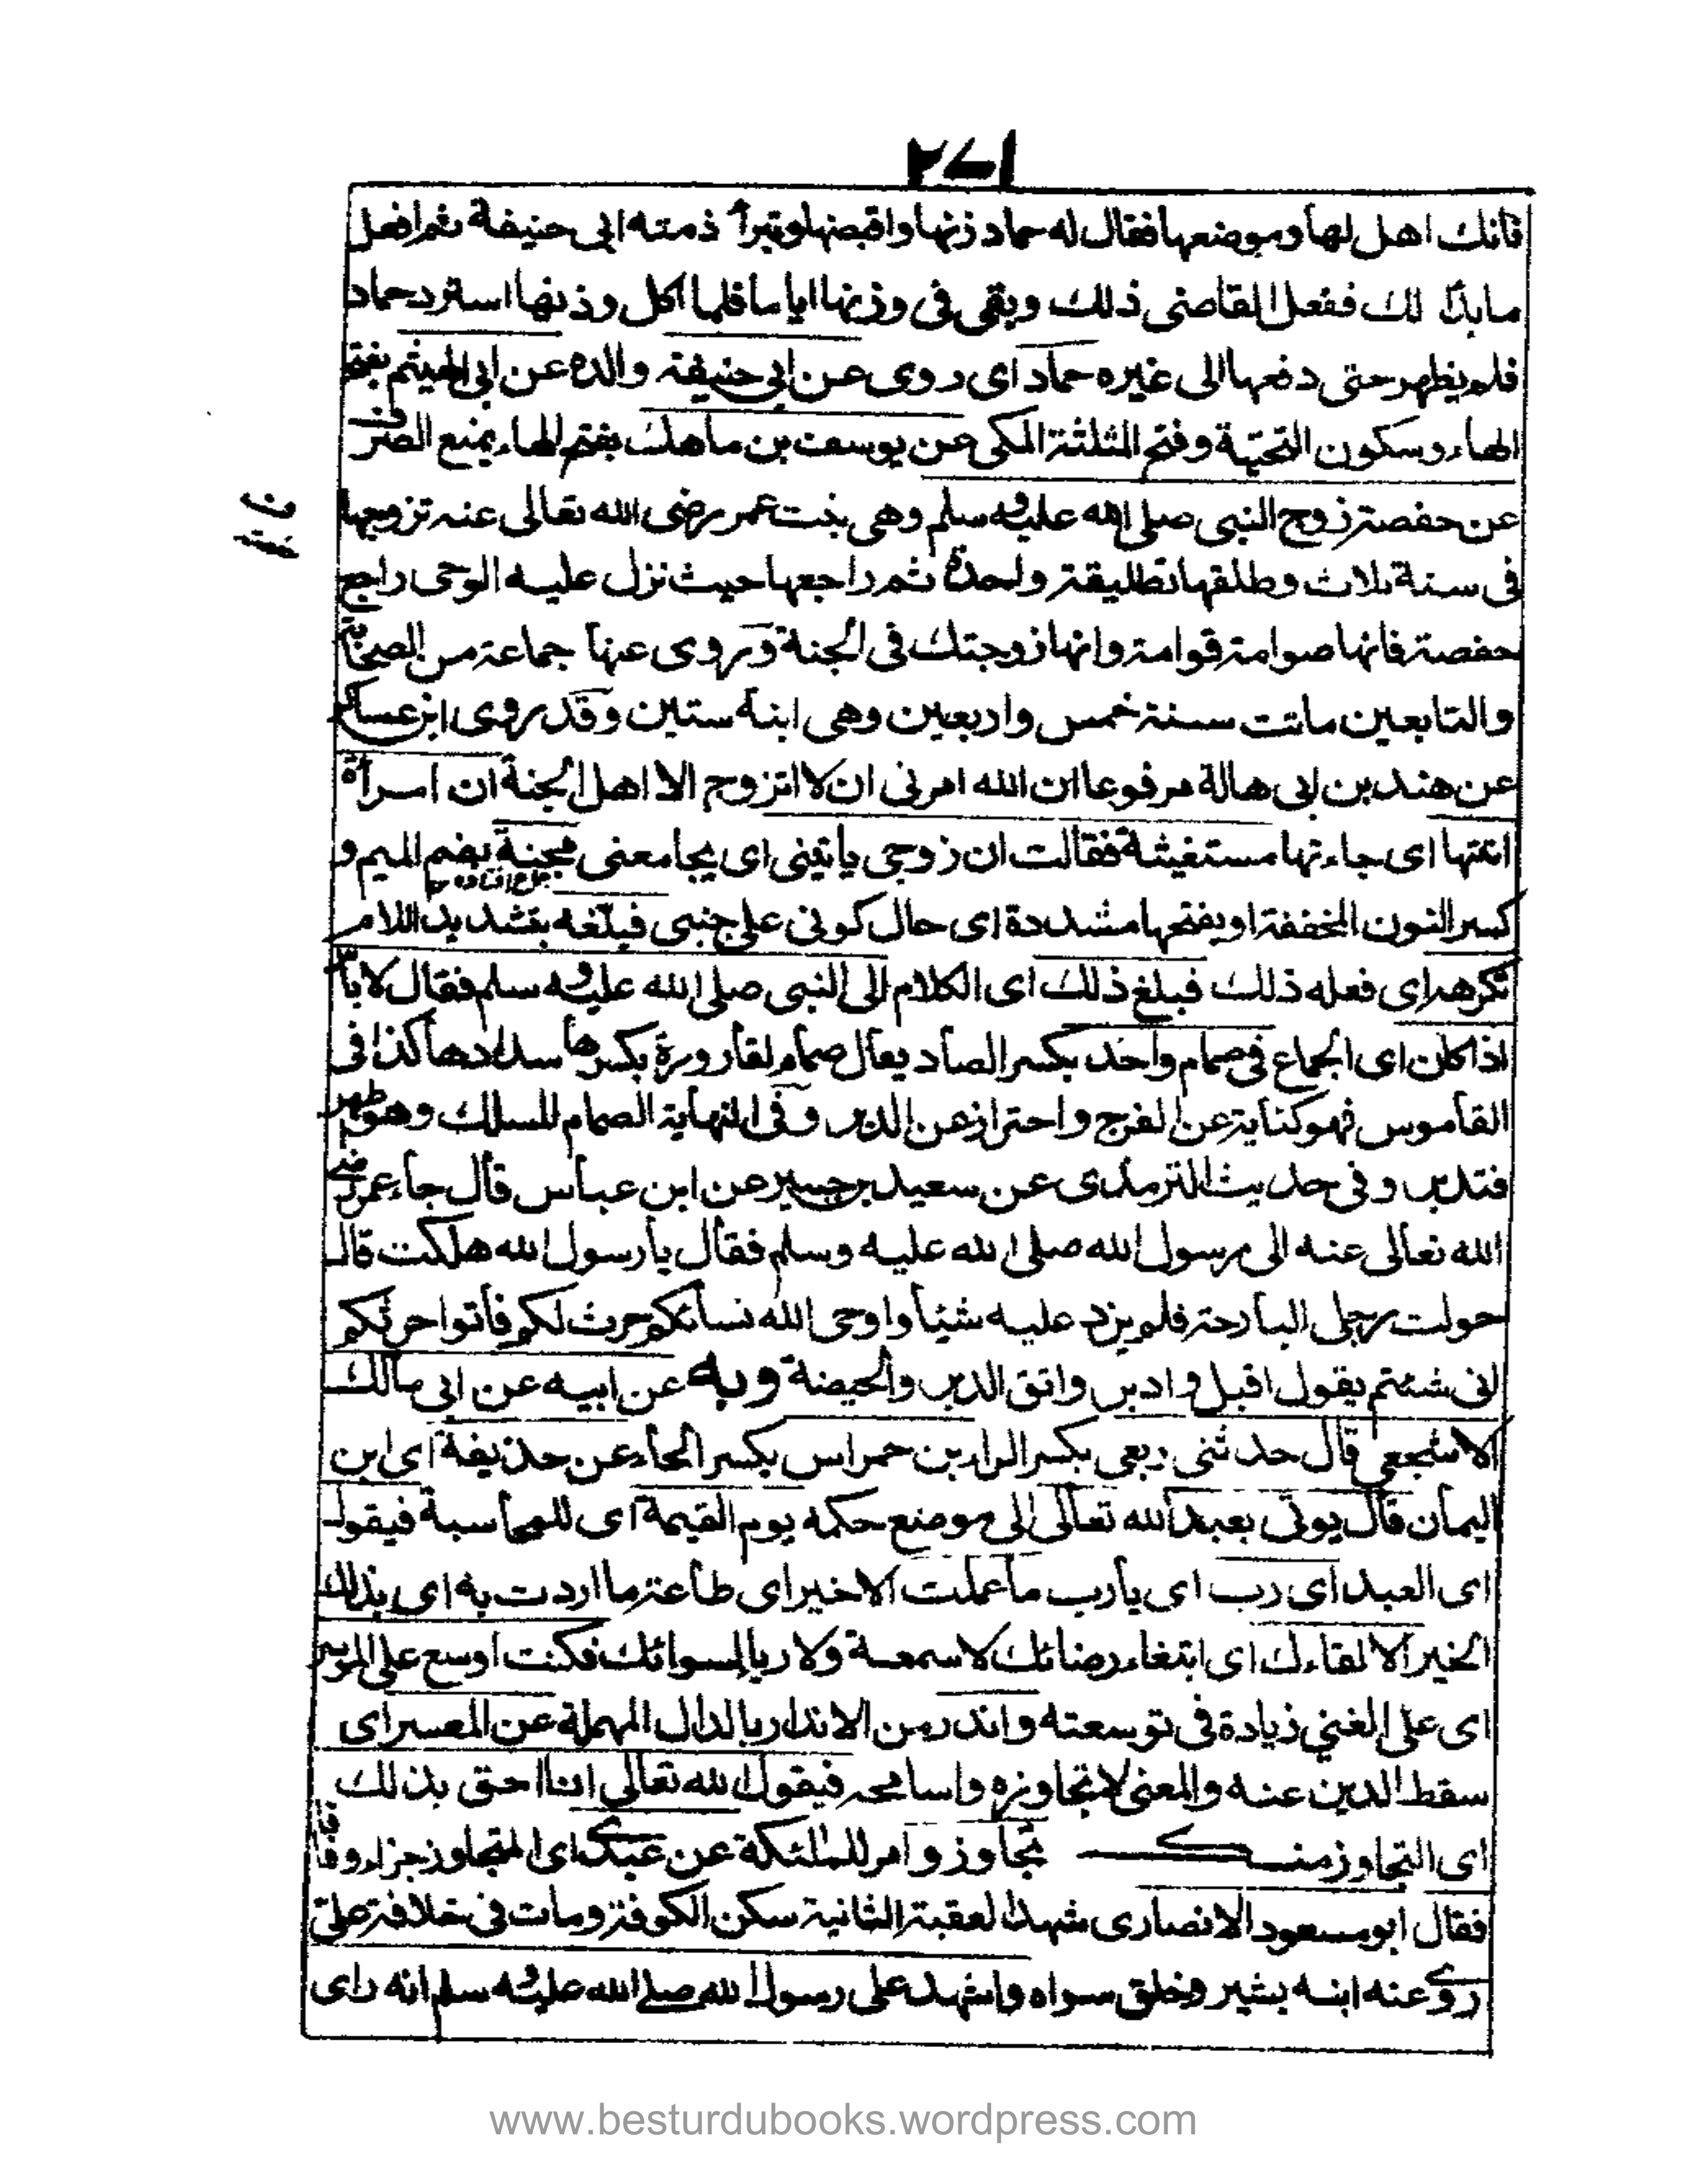 ٢٧١
فانك اهل لها وموضعها فقال له حماد زنها واقبضها وتبرأ ذمته ابي حنيفة ثم افعل
ما بدا لك ففعل القاضي ذلك وبقي في وزنها اياما فلما اكل وزنها استرد حماد
فلم يظهر حتى دفعها الى غيره حماد اى روى عن ابي حنيفة والده عن ابي الهيثم بفتح
الهاء وسكون التحتية وفتح المثلثة المكى عن يوسف بن ماهك بفتح الهاء يمنع الصرف
عن حفصة زوج النبي صلى الله عليه وسلم وهى بنت عمر رضى الله تعالى عنه تزوجها
فى سنة ثلاث وطلقها تطليقة واحدة ثم راجعها حيث نزل عليه الوحى راجع
حفصة فانها صوامة قوامة وانها زوجتك فى الجنة وروى عنها جماعة من الصحابة
والتابعين ماتت سنة خمس واربعين وهى ابنة ستين وقد روى ابن عساكر
عن هند بن ابى هالة مرفوعا ان الله امرنى ان لا اتزوج الا اهل الجنة ان امرأة
اتتها اى جاءتها مستغيثة فقالت ان زوجى ياتينى اى يجامعنى مجنبة بضم الميم و
كسر النون المخففة او بفتحها مشددة اى حال كونى على جنبى فبلّغه بتشديد اللام
نكرهه اى فعله ذلك فبلغ ذلك اى الكلام الى النبى صلى الله عليه وسلم فقال لا باس
اذا كان اى الجماع فى صمام واحد بكسر الصاد يقال صمام القارورة بكسرها سدادها كذا فى
القاموس فهو كناية عن الفرج واحتراز عن الدبر وفى النهاية الصمام للسلك وهو ظهر
فتدبر وفى حديث الترمذى عن سعيد بن جبير عن ابن عباس قال جاء عمر رضى
الله تعالى عنه الى رسول الله صلى الله عليه وسلم فقال يا رسول الله هلكت قال
حولت رحلى البارحة فلم يزد عليه شيئا واوحى الله نسائكم حرث لكم فأتوا حرثكم
انى شئتم يقول اقبل وادبر واتق الدبر والحيضة وبه عن ابيه عن ابى مالك
الاشجعى قال حدثنى ربعى بكسر الراء بن حراش بكسر الحاء عن حذيفة اى ابن
اليمان قال يوتى بعبد الله تعالى الى موضع حكمه يوم القيمة اى للمحاسبة فيقول
اى العبد اى رب اى يارب ما عملت الا خيرا اى طاعة ما اردت به اى بذلك
الخير الا لقاءك اى ابتغاء رضائك لا سمعة ولا ريا لسوائك فكنت اوسع على الموسر
اى على الغني زيادة فى توسعته واندر من الاندار بالدال المهملة عن المعسر اى
سقط الدين عنه والمعنى لا تجاوزه واسامحه فيقول الله تعالى انا احق بذلك
اى التجاوز منك تجاوزوا مر للملئكة عن عبدى اى المتجاوز جزاء وفاقا
فقال ابو مسعود الانصارى شهد العقبة الثانية سكن الكوفة ومات فى خلافة على
روى عنه ابنه بشير وخلق سواه واشهد على رسول الله صلى الله عليه وسلم انه راى
www.besturdubooks.wordpress.com